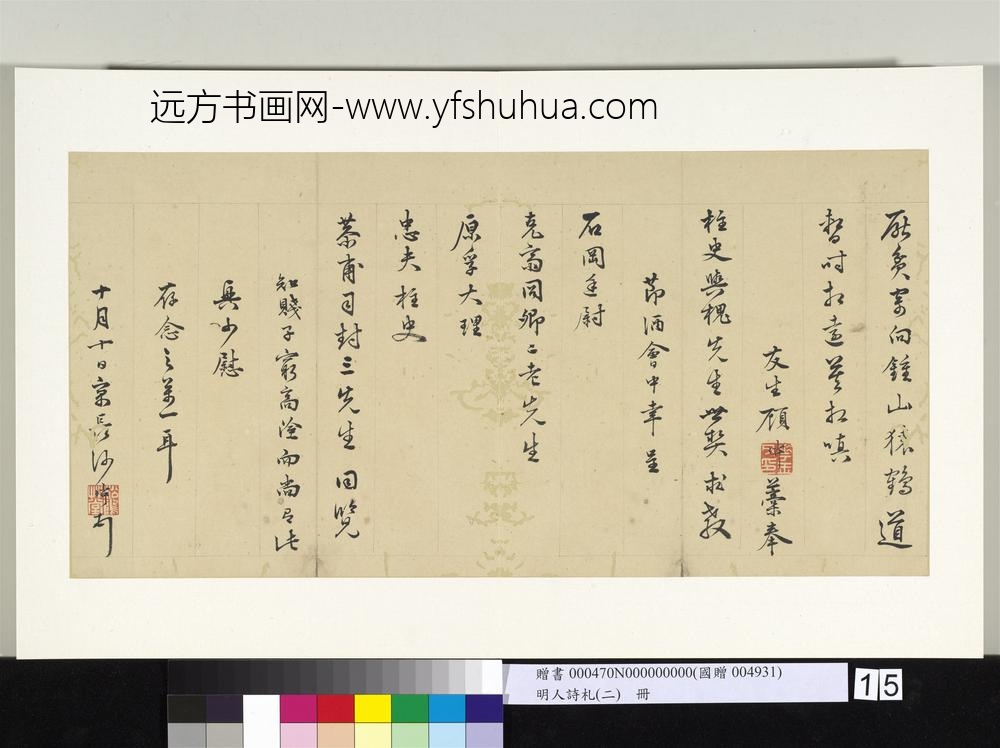 远方书画网-www.yfshuhua.com
向鍾山猿鶴道
暫時相違莫相嗔
友生顧 藁奉
柱史與槐先生世契求教
節酒會中幸呈
石岡廷尉
克齋同卿二老先生
原孚大理
忠夫柱史
司封三先生同覽
知賤子窮高淦而尚
少慰
存念之萬一耳
十月十日
贈書 000470N000000000(國贈 004931)
明人詩札(二) 冊
15